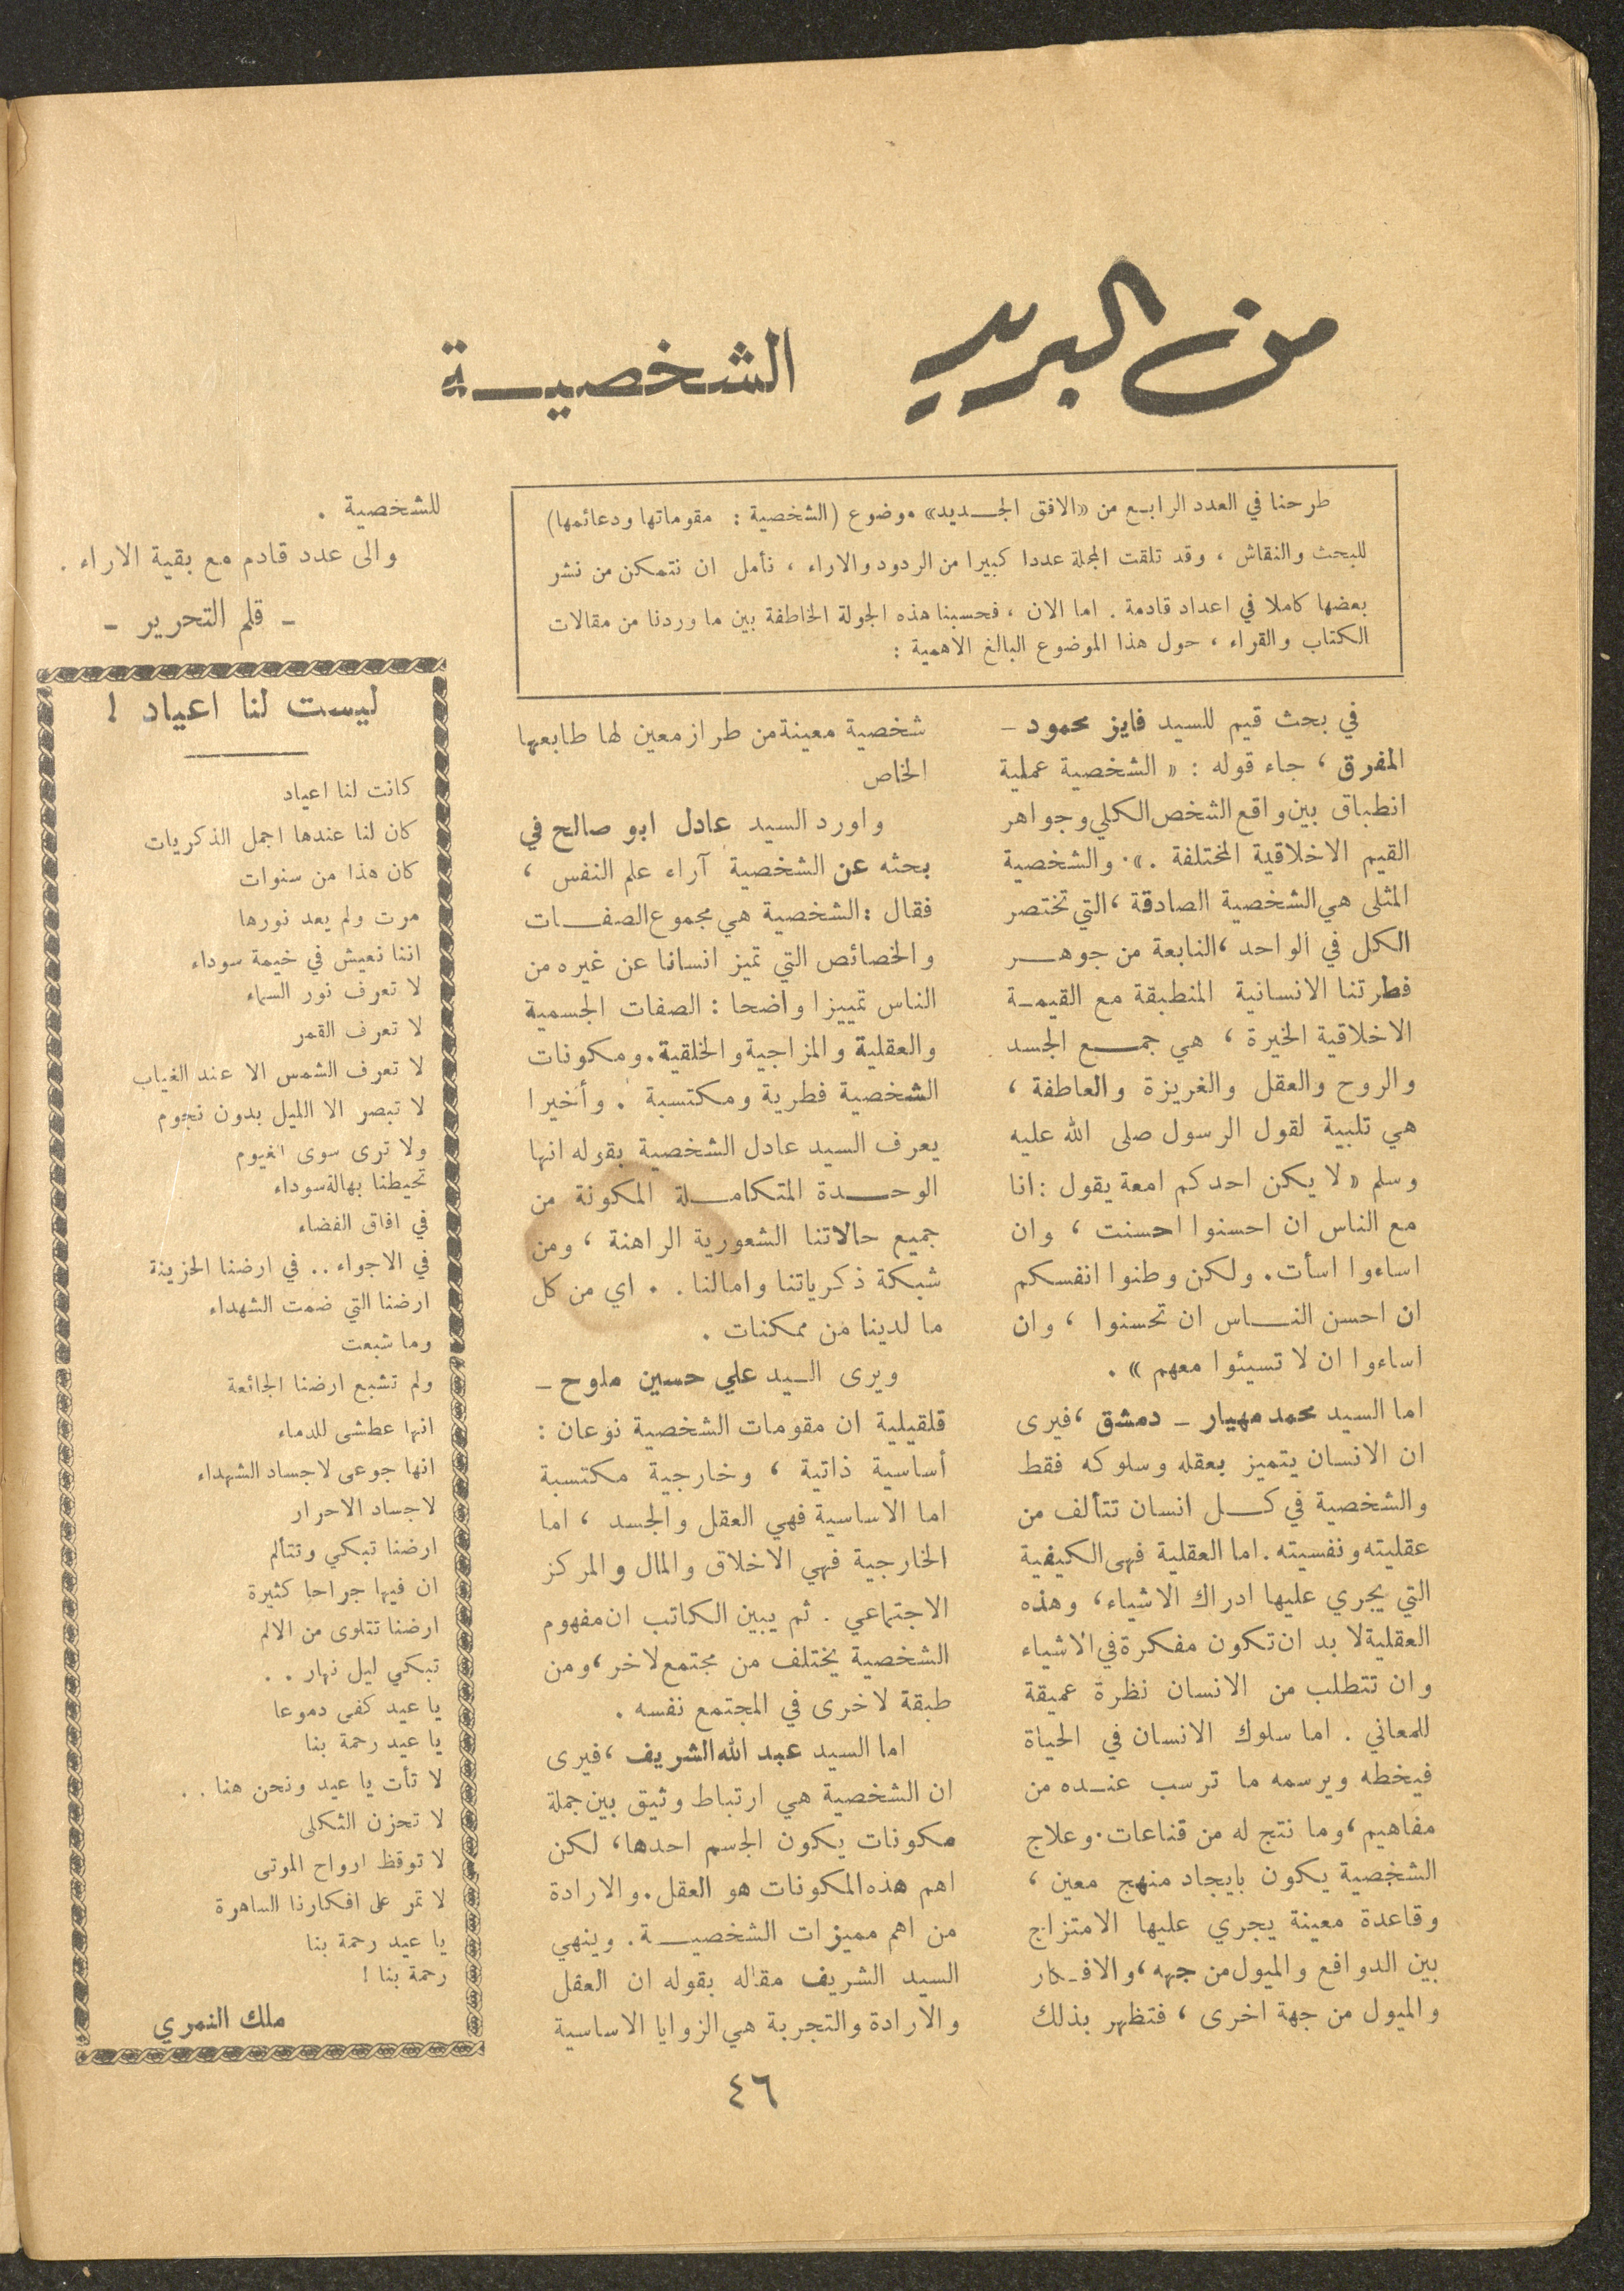 من البريد
الشخصيـــة
طرحنا في العدد الرابع من «الافق الجـديد» موضوع (الشخصية : مقوماتها ودعائمها)
للبحث والنقاش ، وقد تلقت المجلة عددا كبيرا من الردود والاراء ، نأمل ان نتمكن من نشر
بعضها كاملا في اعداد قادمة . اما الان ، فحسبنا هذه الجولة الخاطفة بين ما وردنا من مقالات
الكتاب والقراء ، حول هذا الموضوع البالغ الاهمية :
في بحث قيم للسيد فايز محمود –
المفرق ، جاء قوله : « الشخصية عملية
انطباق بين واقع الشخص الكلي وجواهر
القيم الاخلاقية المختلفة .» . والشخصية
المثلى هي الشخصية الصادقة ، التي تختصر
الكل في الواحد ، النابعة من جوهـــر
فطرتنا الانسانية المنطبقة مع القيمـة
الاخلاقية الخيرة ، هي جمـــع الجسد
والروح والعقل والغريزة والعاطفة ،
هي تلبية لقول الرسول صلى الله عليه
وسلم « لا يكن احدكم امعة يقول : انا
مع الناس ان احسنوا احسنت ، وان
اساءوا اسأت . ولكن وطنوا انفسكم
ان احسن النـــاس ان تحسنوا ، وان
اساءوا ان لا تسيئوا معهم » .
اما السيد محمد مهيار – دمشق ، فيرى
ان الانسان يتميز بعقله وسلوكه فقط
والشخصية في كـــل انسان تتألف من
عقليته ونفسيته . اما العقلية فهى الكيفية
التي يجري عليها ادراك الاشياء ، وهذه
العقلية لا بد ان تكون مفكرة في الاشياء
وان تتطلب من الانسان نظرة عميقة
للمعاني . اما سلوك الانسان في الحياة
فيخطه ويرسمه ما ترسب عنـده من
مفاهيم ، وما نتج له من قناعات . وعلاج
الشخصية يكون بايجاد منهج معين ،
وقاعدة معينة يجري عليها الامتزاج
بين الدوافع والميول من جهه ، والافـكار
والميول من جهة اخرى ، فتظهر بذلك
شخصية معينة من طراز معين لها طابعها
الخاص
واورد السيد عادل ابو صالح في
بحثه عن الشخصية آراء علم النفس ،
فقال : الشخصية هي مجموع الصفـــات
والخصائص التي تميز انسانا عن غيره من
الناس تمييزا واضحا : الصفات الجسمية
والعقلية والمزاجية والخلقية . ومكونات
الشخصية فطرية ومكتسبة . وأخيرا
يعرف السيد عادل الشخصية بقوله انها
الوحـــدة المتكامـــلة المكونة من
جميع حالاتنا الشعورية الراهنة ، ومن
شبكة ذكرياتنا وامالنا . . اي من كل
ما لدينا من ممكنات .
ويرى السيد علي حسين ملوح –
قلقيلية ان مقومات الشخصية نوعان :
أساسية ذاتية ، وخارجية مكتسبة
اما الاساسية فهي العقل والجسد ، اما
الخارجية فهي الاخلاق والمال والمركز
الاجتماعي . ثم يبين الكاتب ان مفهوم
الشخصية يختلف من مجتمع لاخر ، ومن
طبقة لاخرى في المجتمع نفسه .
اما السيد عبد الله الشريف ، فيرى
ان الشخصية هي ارتباط وثيق بين جملة
مكونات يكون الجسم احدها ، لكن
اهم هذه المكونات هو العقل . والارادة
من اهم مميزات الشخصيـــة . وينهي
السيد الشريف مقاله بقوله ان العقل
والارادة والتجربة هي الزوايا الاساسية
للشخصية .
والى عدد قادم مع بقية الاراء .
– قلم التحرير –
ليست لنا اعياد !
كانت لنا اعياد
كان لنا عندها اجمل الذكريات
كان هذا من سنوات
مرت ولم يعد نورها
اننا نعيش في خيمة سوداء
لا تعرف نور السماء
لا تعرف القمر
لا تعرف الشمس الا عند الغياب
لا تبصر الا الليل بدون نجوم
ولا ترى سوى الغيوم
تحيطنا بهالة سوداء
في افاق الفضاء
في الاجواء .. في ارضنا الحزينة
ارضنا التي ضمت الشهداء
وما شبعت
ولم تشبع ارضنا الجائعة
انها عطشى للدماء
انها جوعى لاجساد الشهداء
لاجساد الاحرار
ارضنا تبكي وتتألم
ان فيها جراحا كثيرة
ارضنا تتلوى من الالم
تبكي ليل نهار . .
يا عيد كفى دموعا
يا عيد رحمة بنا
لا تأت يا عيد ونحن هنا . .
لا تحزن الثكلى
لا توقظ ارواح الموتى
لا تمر على افكارنا الساهرة
يا عيد رحمة بنا
رحمة بنا !
ملك النمري
٤٦